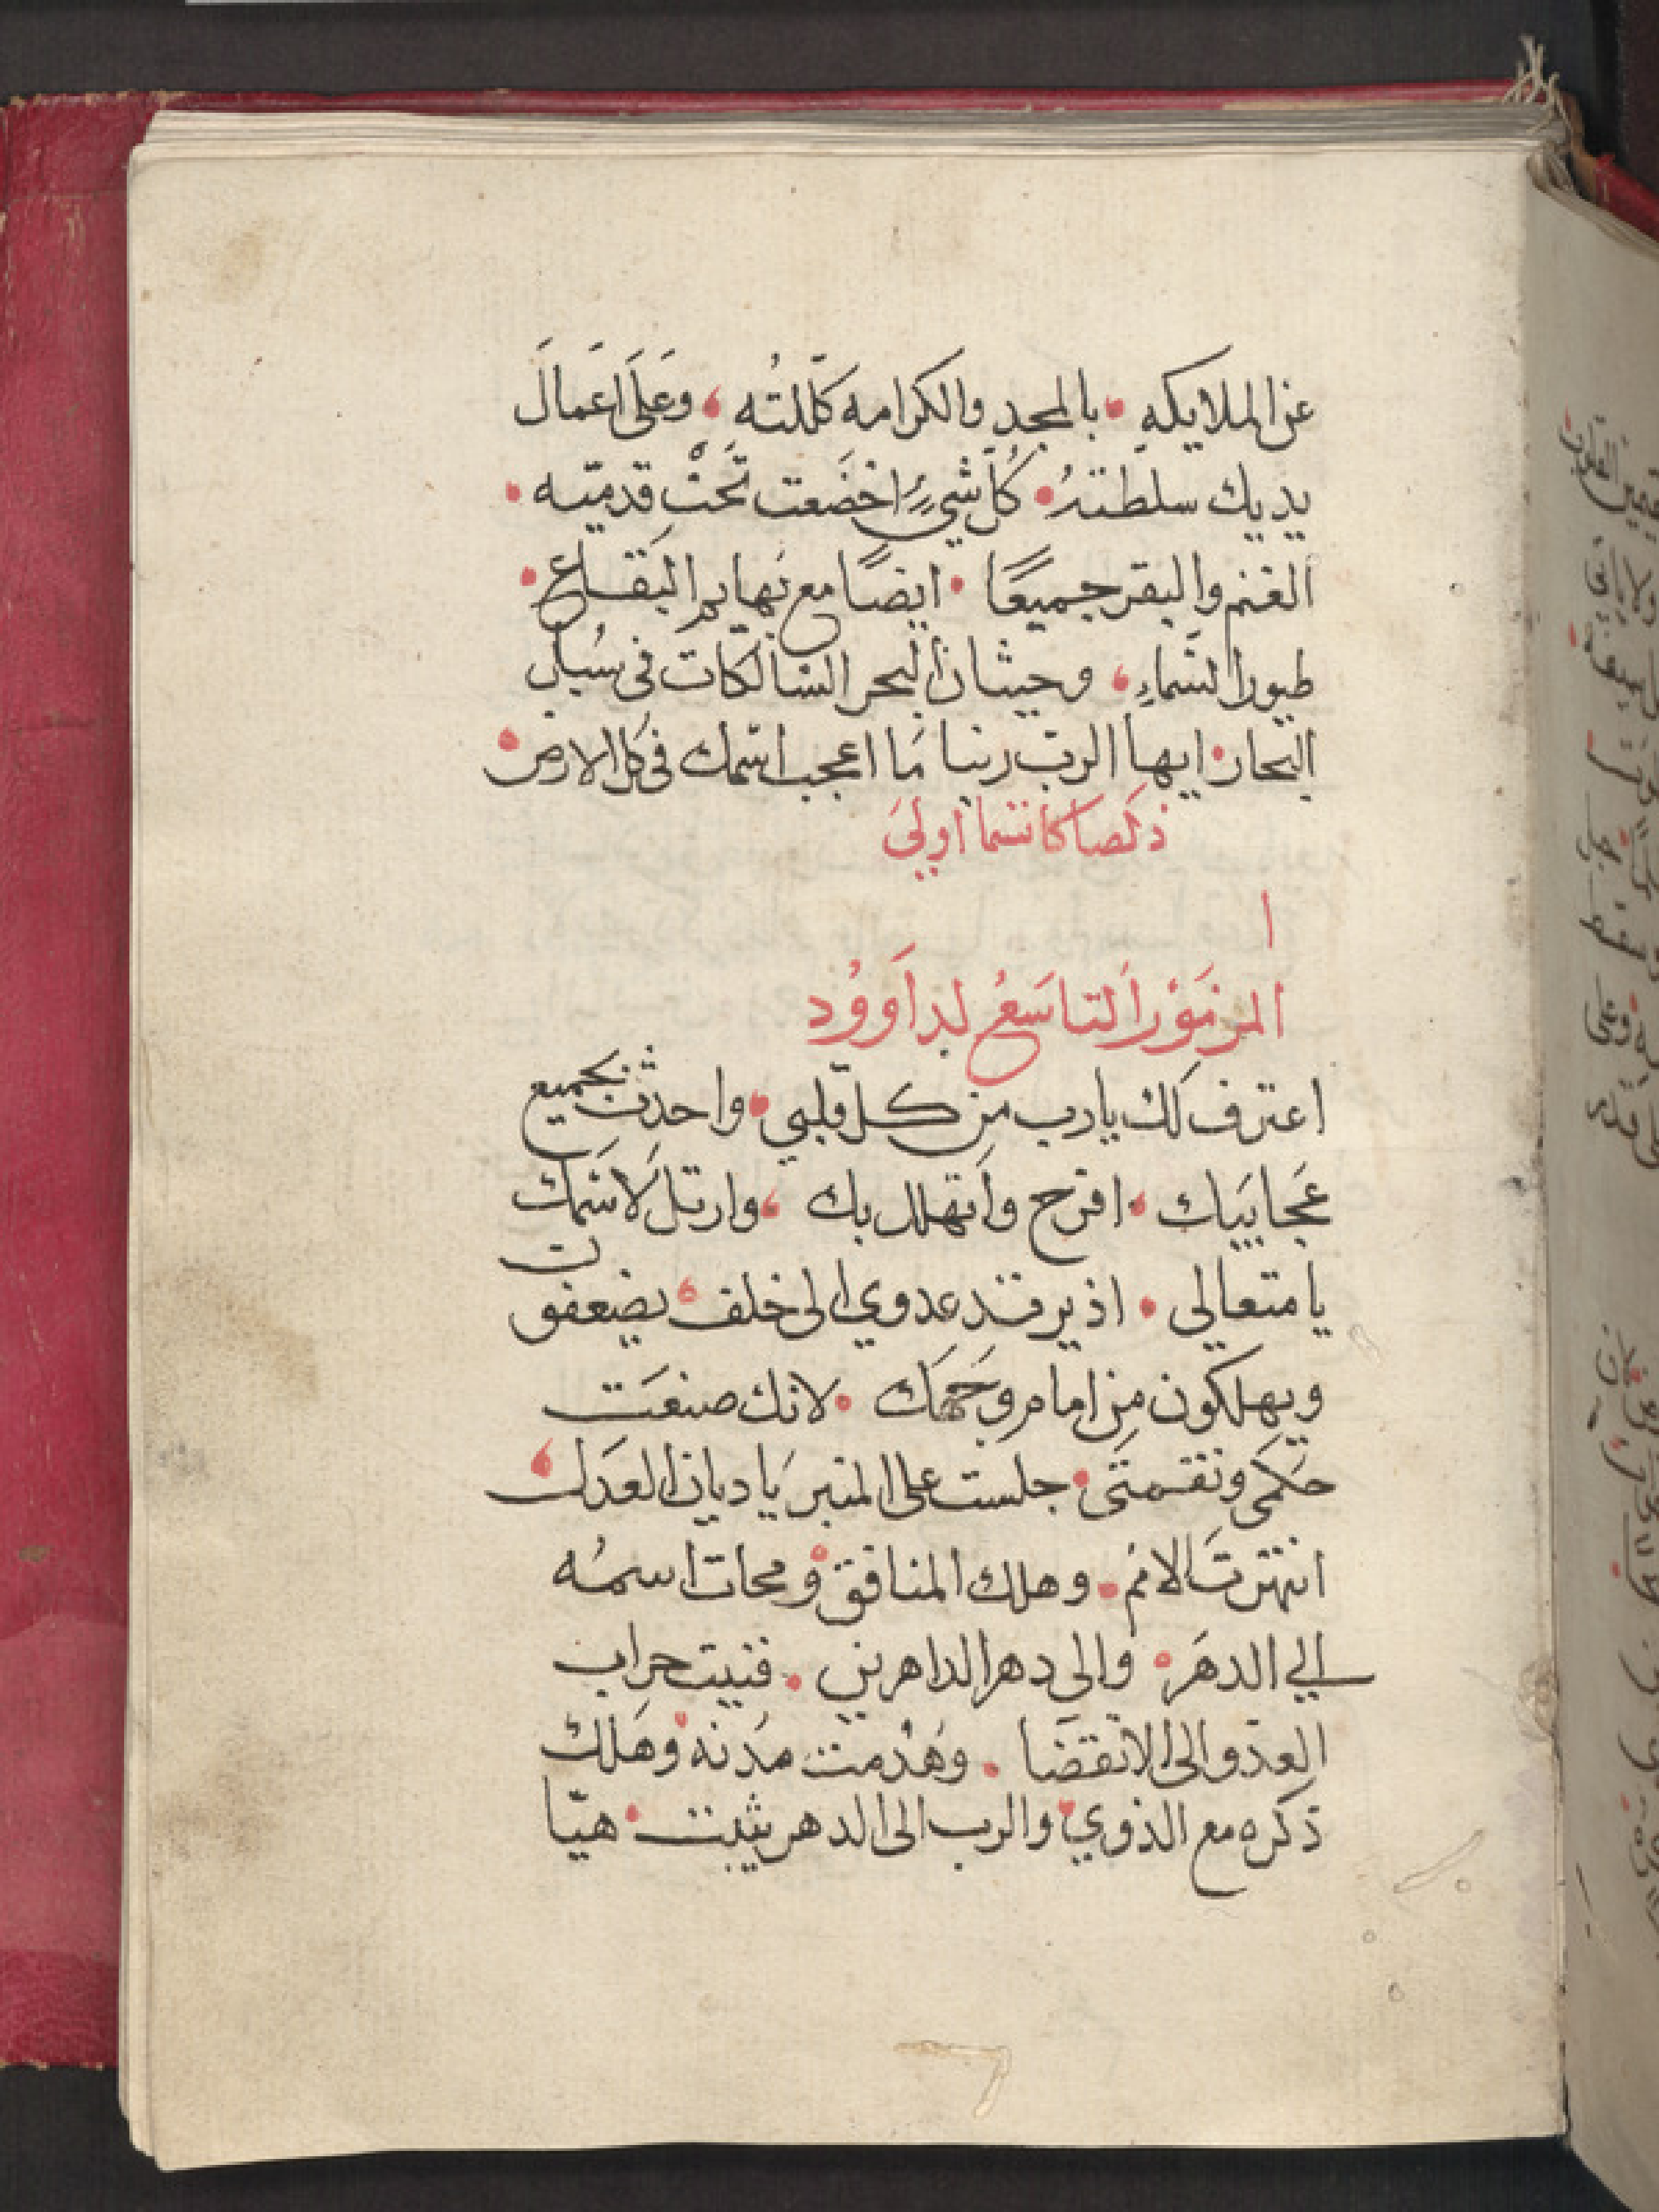 عن الملايكهِ • بالمجدِ والكرامه كلّلتُه • وَعَلَى اعَمالَ
يديك سلطتهُ • كُلّ شيءٍ اخضَعت تَحْتَ قدميّه •
الغنم والبقر جميعًا • ايضًا مع بَهايم البقاع •
طيور السَماءِ • وحيتان البحر السَالكات في سُبل
البحار • ايها الرب ربنا مَا اعجب اسمك في كل الارض •
ذكصا كانسما اولىَ
ا
المزمَوْر اَلتاسَعُ لداَووُد
اعترف لك يا رب من كل قلبي • واحدّث بجميع
عَجاييَك • افرح واَتهلل بك • وارتل لاَسَمك
يا متعالي • اذ يرتد عدوي الى خلف • يضعفون
ويهلكون من امام وجَهَك • لانك صنعَت
حكَمى ونقمتَى • جلست على المنبر يَا ديان العَدل •
انتهرتَ الامم • وهلك المنافق • ومحات اسمُه
الي الدهَر • والى دهر الداهرين • فنيت حراب
العدّو الى الانقضَا • وهُدمت مدَنه • وهَلك
ذكره مع الذوي • والرب الى الدهر يثبت • هيّا